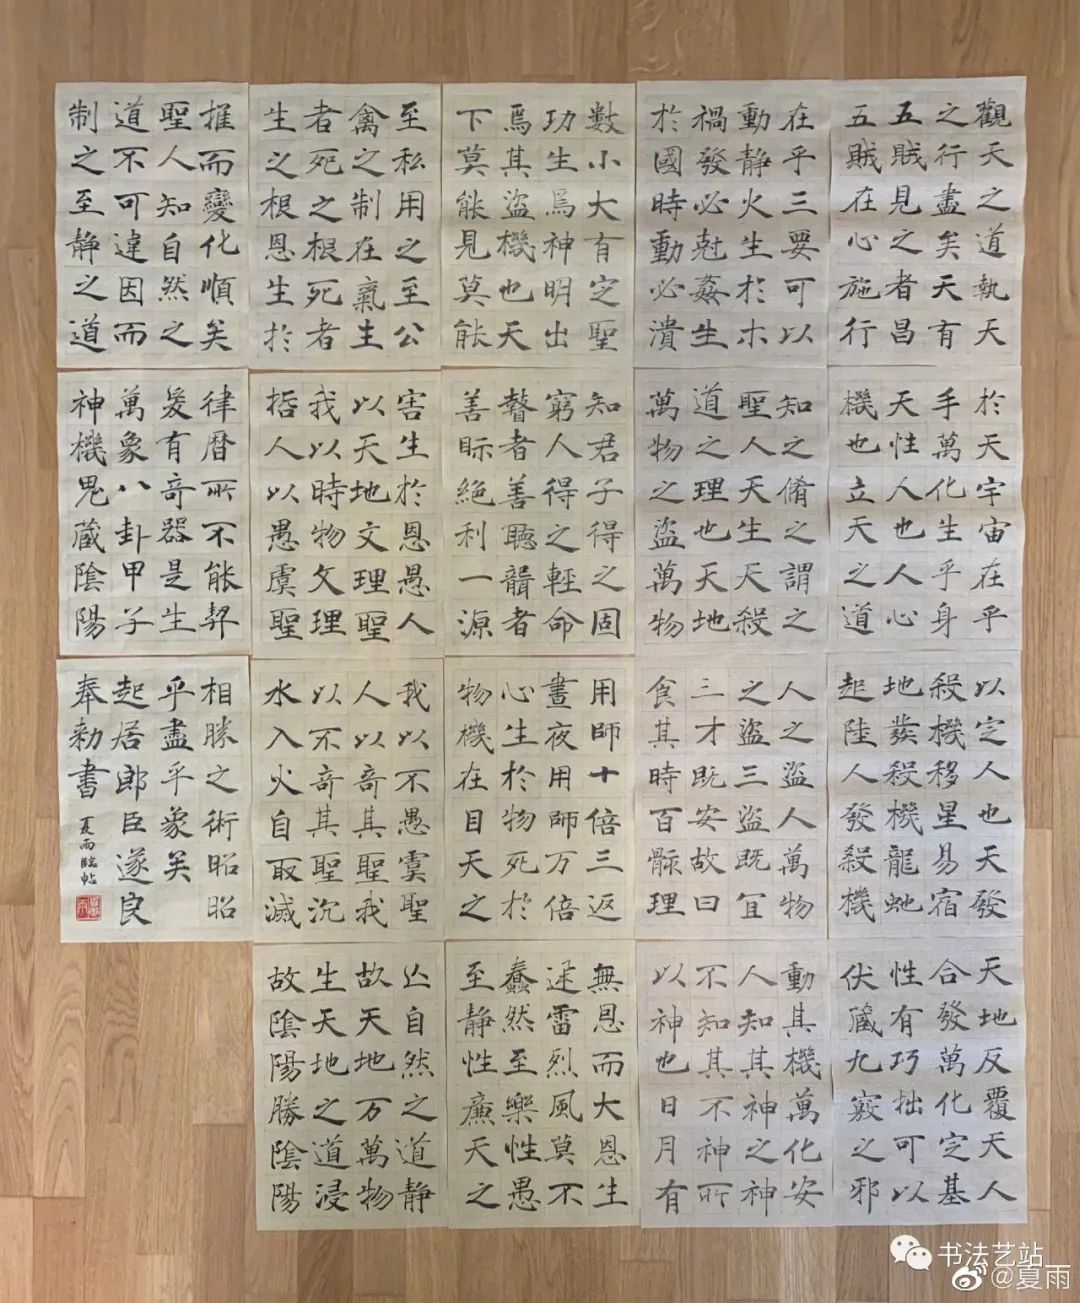 觀天之道執天
之行盡矣天有
五賊見之者昌
五賊在心施行
於天宇宙在乎
手萬化生乎身
天性人也人心
機也立天之道
以定人也天發
殺機移星易宿
地發殺機龍虵
起陸人發殺機
天地反覆天人
合發萬化定基
性有巧拙可以
伏藏九竅之邪
在乎三要可以
動靜火生於木
禍發必尅姦生
於國時動必潰
知之脩之謂之
聖人天生天殺
道之理也天地
萬物之盜萬物
人之盜人萬物
之盜三盜既宜
三才既安故曰
食其時百骸理
動其機萬化安
人知其神之神
不知其不神所
以神也日月有
數小大有定聖
功生焉神明出
焉其盜機也天
下莫能見莫能
知君子得之固
窮人得之輕命
瞽者善聽聾者
善眎絕利一源
用師十倍三返
晝夜用師万倍
心生於物死於
物機在目天之
無恩而大恩生
迅雷烈風莫不
蠢然至樂性愚
至靜性廉天之
至私用之至公
禽之制在氣生
者死之根死者
生之根恩生於
害生於恩愚人
以天地文理聖
我以時物文理
哲人以愚虞聖
我以不愚虞聖
人以奇其聖我
以不奇其聖沉
水入火自取滅
亾自然之道靜
故天地万萬物
生天地之道浸
故陰陽勝陰陽
推而變化順矣
聖人知自然之
道不可違因而
制之至靜之道
律曆所不能契
爰有奇器是生
萬象八卦甲子
神機鬼藏陰陽
相勝之術昭昭
乎盡乎象矣
起居郎臣遂良
奉勑書
夏雨臨帖
书法艺站
@夏雨